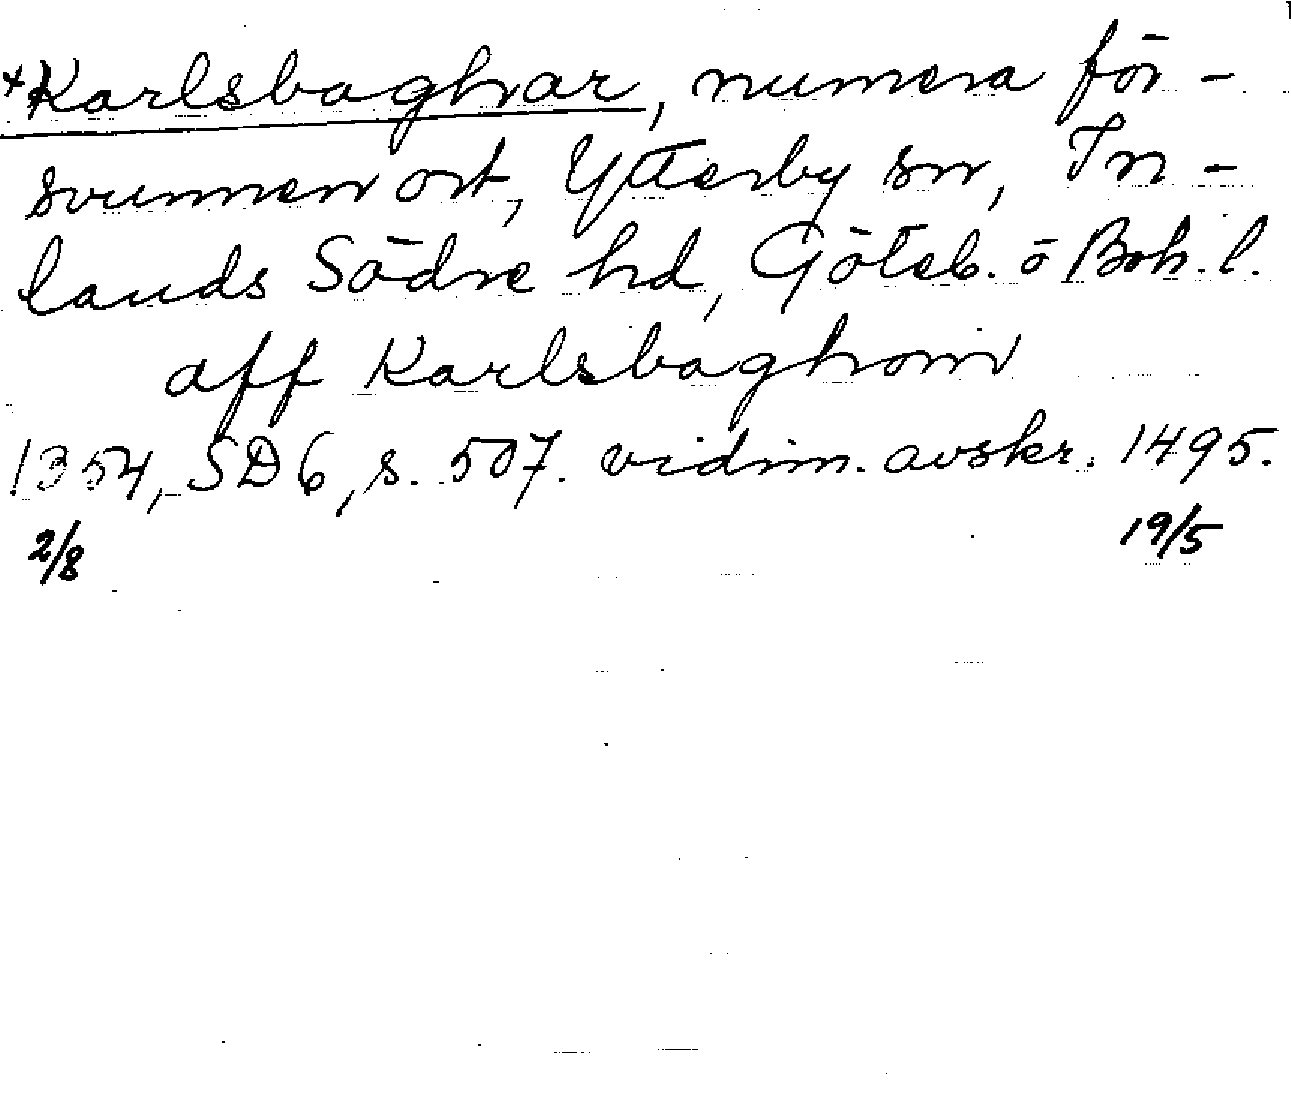 +Karlsbaghar, numera för-
svunnen ort, Ytterby sn, In-
lands Södre hd, Göteb. o Boh. l.
aff Karlsbaghom
1354, SD 6, s. 507. vidim. avskr. 1495.
2/8 19/5